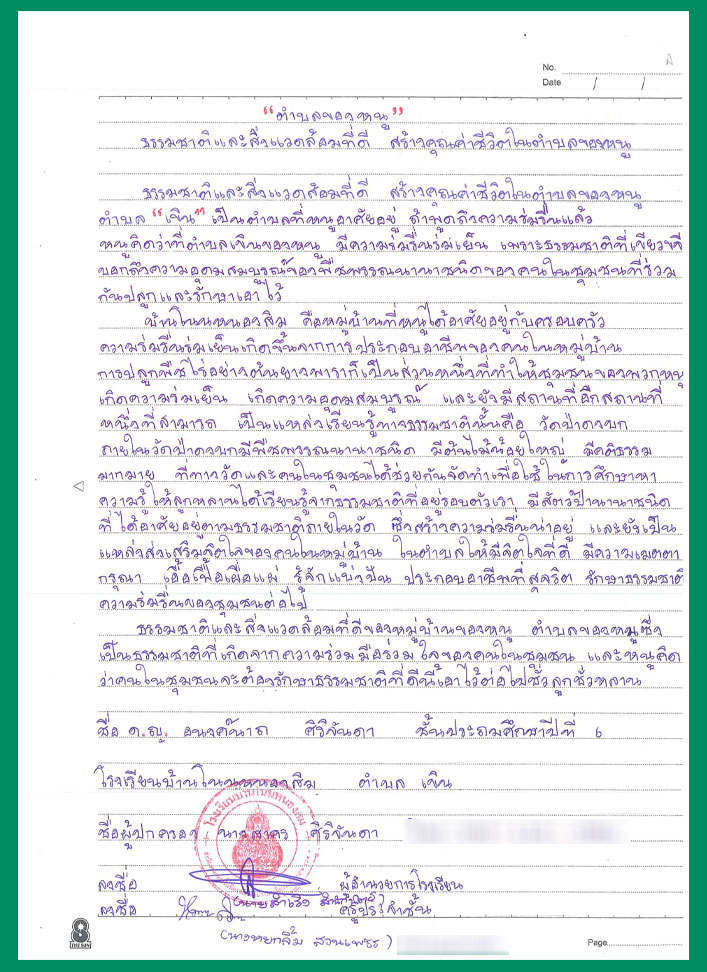 No.
Date / /
"ตำบลของหนู"
ธรรมชาติและสิ่งแวดล้อมที่ดี สร้างคุณค่าชีวิตในตำบลของหนู
ธรรมชาติและสิ่งแวดล้อมที่ดี สร้างคุณค่าชีวิตในตำบลของหนู
ตำบล "เขิน" เป็นตำบลที่หนูอาศัยอยู่ ถ้าพูดถึงความร่มรื่นแล้ว
หนูคิดว่าที่ตำบลเขินของหนู มีความร่มรื่นร่มเย็น เพราะธรรมชาติที่เขียวขจี
บอกถึงความอุดมสมบูรณ์ของพืชพรรณนานาชนิดของคนในชุมชนที่ร่วม
กันปลูกและรักษาเอาไว้
บ้านโนนหนองสิม คือหมู่บ้านที่หนูได้อาศัยอยู่กับครอบครัว
ความร่มรื่นร่มเย็นเกิดขึ้นจากการประกอบอาชีพของคนในหมู่บ้าน
การปลูกพืชไร่อย่างต้นยางพาราก็เป็นส่วนหนึ่งที่ทำให้ชุมชนของพวกหนู
เกิดความร่มเย็น เกิดความอุดมสมบูรณ์ และยังมีสถานที่อีกสถานที่
หนึ่งที่สามารถ เป็นแหล่งเรียนรู้ทางธรรมชาตินั้นคือ วัดป่าดงบก
ภายในวัดป่าดงบกมีพืชพรรณนานาชนิด มีต้นไม้น้อยใหญ่ มีคติธรรม
มากมาย ที่ทางวัดและคนในชุมชนได้ช่วยกันจัดทำเพื่อใช้ในการศึกษาหา
ความรู้ ให้ลูกหลานได้เรียนรู้จากธรรมชาติที่อยู่รอบตัวเรา มีสัตว์ป่านานาชนิด
ที่ได้อาศัยอยู่ตามธรรมชาติภายในวัด ซึ่งสร้างความร่มรื่นน่าอยู่ และยังเป็น
แหล่งส่งเสริมจิตใจของคนในหมู่บ้าน ในตำบลให้มีจิตใจที่ดี มีความเมตตา
กรุณา เอื้อเฟื้อเผื่อแผ่ รู้จักแบ่งปัน ประกอบอาชีพที่สุจริต รักษาธรรมชาติ
ความร่มรื่นของชุมชนต่อไป
ธรรมชาติและสิ่งแวดล้อมที่ดีของหมู่บ้านของหนู ตำบลของหนูซึ่ง
เป็นธรรมชาติที่เกิดจากความร่วมมือร่วมใจของคนในชุมชน และหนูคิด
ว่าคนในชุมชนจะต้องรักษาธรรมชาติที่ดีนี้เอาไว้ต่อไปชั่วลูกชั่วหลาน
ชื่อ ด.ญ. อนงค์นาถ ศิริจันดา ชั้นประถมศึกษาปีที่ 6
โรงเรียนบ้านโนนหนองสิม ตำบล เขิน
ชื่อผู้ปกครอง นางสาคร ศิริจันดา
ลงชื่อ ผู้อำนวยการโรงเรียน
(นายสำเริง
ลงชื่อ ครูประจำชั้น
(นางหยกลิ้ม สวนเพชร)
Page